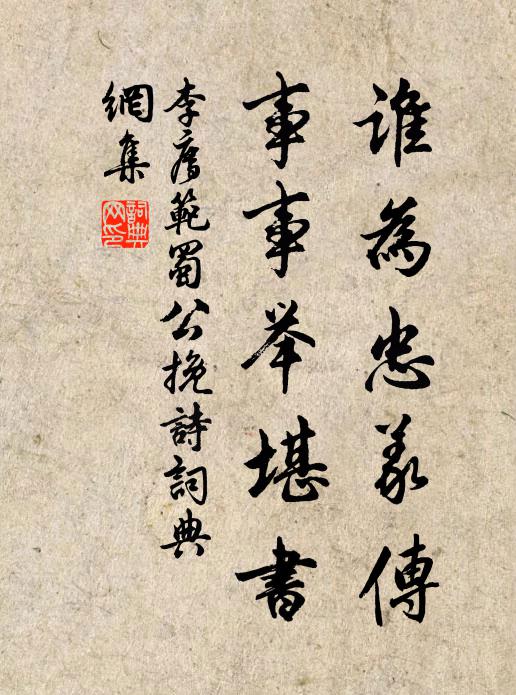 誰為忠義傳
事事举堪書
李廌範蜀公挽詩詞典
網集
詞典網印